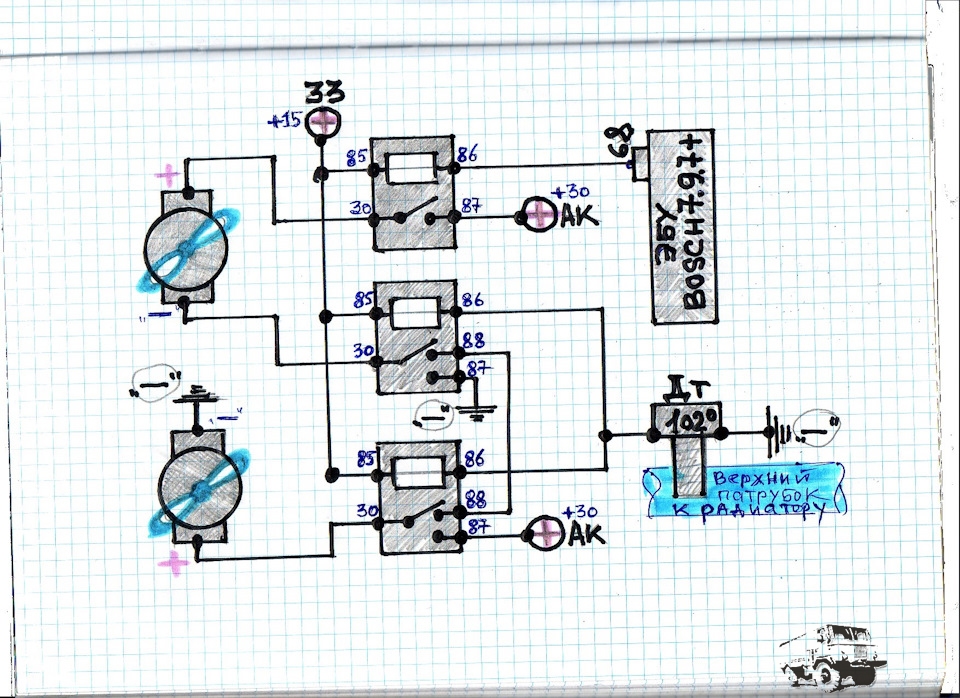 33
+15
+
85
86
68
ЭБУ
BOSCH 7.9.7+
30
87
+30
АК
"—"
85
86
30
88
87
"—"
"—"
"—"
ДТ
102°
"—"
85
86
30
88
87
+30
АК
+
Верхний
патрубок
к радиатору